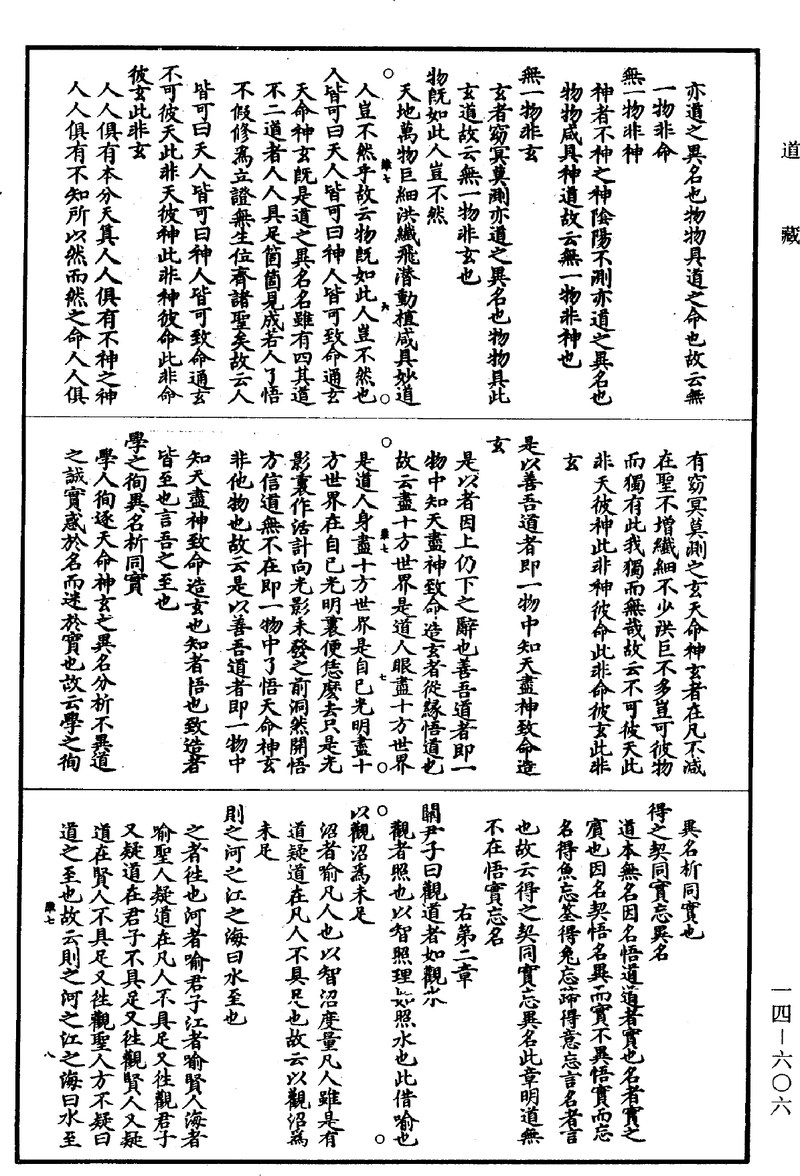 道藏
亦道之異名也物物具道之命也故云無
一物非命
無一物非神
神者不神之神陰陽不測亦道之異名也
物物咸具神道故云無一物非神也
無一物非玄
玄者窈冥莫測亦道之異名也物物具此
玄道故云無一物非玄也
物既如此人豈不然
天地萬物巨細洪纖飛潛動植咸具妙道
人豈不然乎故云物既如此人豈不然也
人皆可曰天人皆可曰神人皆可致命通玄
天命神玄既是道之異名名雖有四其道
不二道者人人具足箇箇見成若人了悟
不假修為立證無生位齊諸聖矣故云人
皆可曰天人皆可曰神人皆可致命通玄
不可彼天此非天彼神此非神彼命此非命
彼玄此非玄
人人俱有本分天真人人俱有不神之神
人人俱有不知所以然而然之命人人俱
有窈冥莫測之玄天命神玄者在凡不減
在聖不增纖細不少洪巨不多豈可彼物
而獨有此我獨而無哉故云不可彼天此
非天彼神此非神彼命此非命彼玄此非
玄
是以善吾道者即一物中知天盡神致命造
玄
是以者因上仍下之辭也善吾道者即一
物中知天盡神致命造玄者從緣悟道也
故云盡十方世界是道人眼盡十方世界
是道人身盡十方世界是自己光明盡十
方世界在自己光明裏便恁麼去只是光
影裏作活計向光影未發之前洞然開悟
方信道無不在即一物中了悟天命神玄
非他物也故云是以善吾道者即一物中
知天盡神致命造玄也知者悟也致造者
皆至也言吾之至也
學之徇異名析同實
學人徇逐天命神玄之異名分析不異道
之誠實惑於名而迷於實也故云學之徇
異名析同實也
得之契同實忘異名
道本無名因名悟道道者實也名者實之
賓也因名契悟名異而實不異悟實而忘
名得魚忘筌得兔忘蹄得意忘言名者言
也故云得之契同實忘異名此章明道無
不在悟實忘名
右第二章
關尹子曰觀道者如觀水
觀者照也以智照理如照水也此借喻也
以觀沼為未足
沼者喻凡人也以智沼度量凡人雖是有
道疑道在凡人不具足也故云以觀沼為
未足
則之河之江之海曰水至也
之者往也河者喻君子江者喻賢人海者
喻聖人疑道在凡人不具足又往觀君子
又疑道在君子不具足又往觀賢人又疑
道在賢人不具足又往觀聖人方不疑曰
道之至也故云則之河之江之海曰水至
一四—六〇六